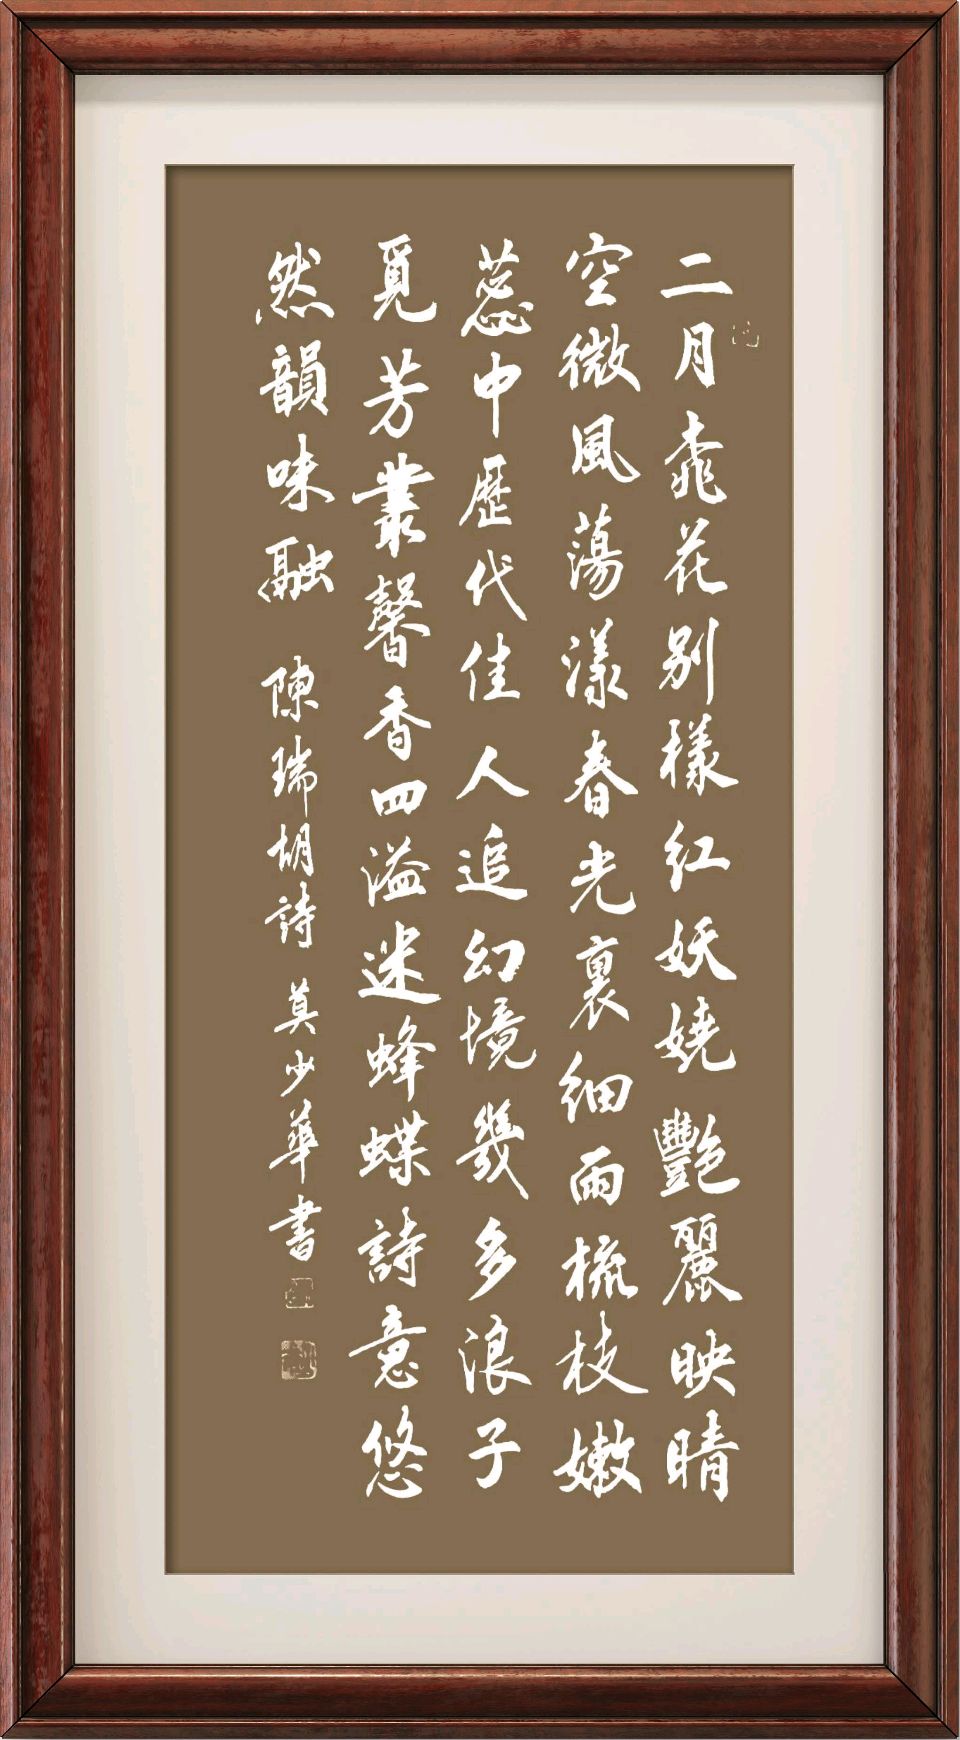 二月桃花别樣红妖娆艷麗映晴
空微風蕩漾春光裏细雨梳枝嫩
蕊中歷代佳人追幻境幾多浪子
覓芳叢馨香四溢迷蜂蝶詩意悠
然韻味融 陳瑞胡詩 莫少華書